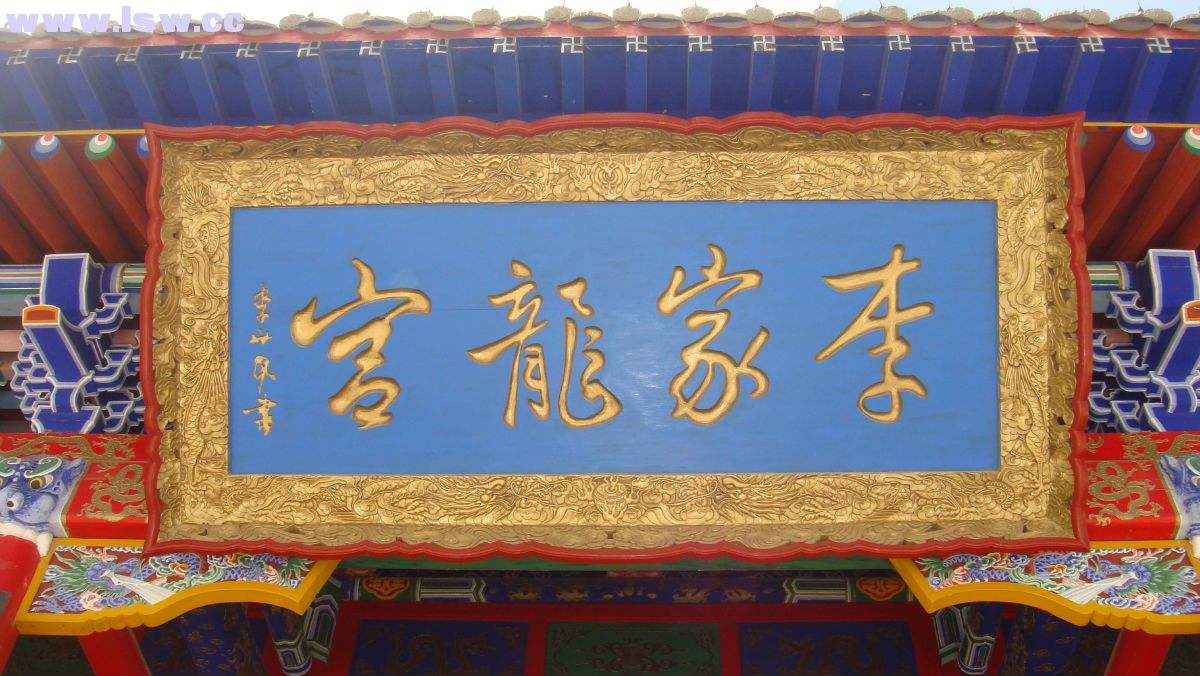 www.lsw.cc
李家龍宮
李世民書